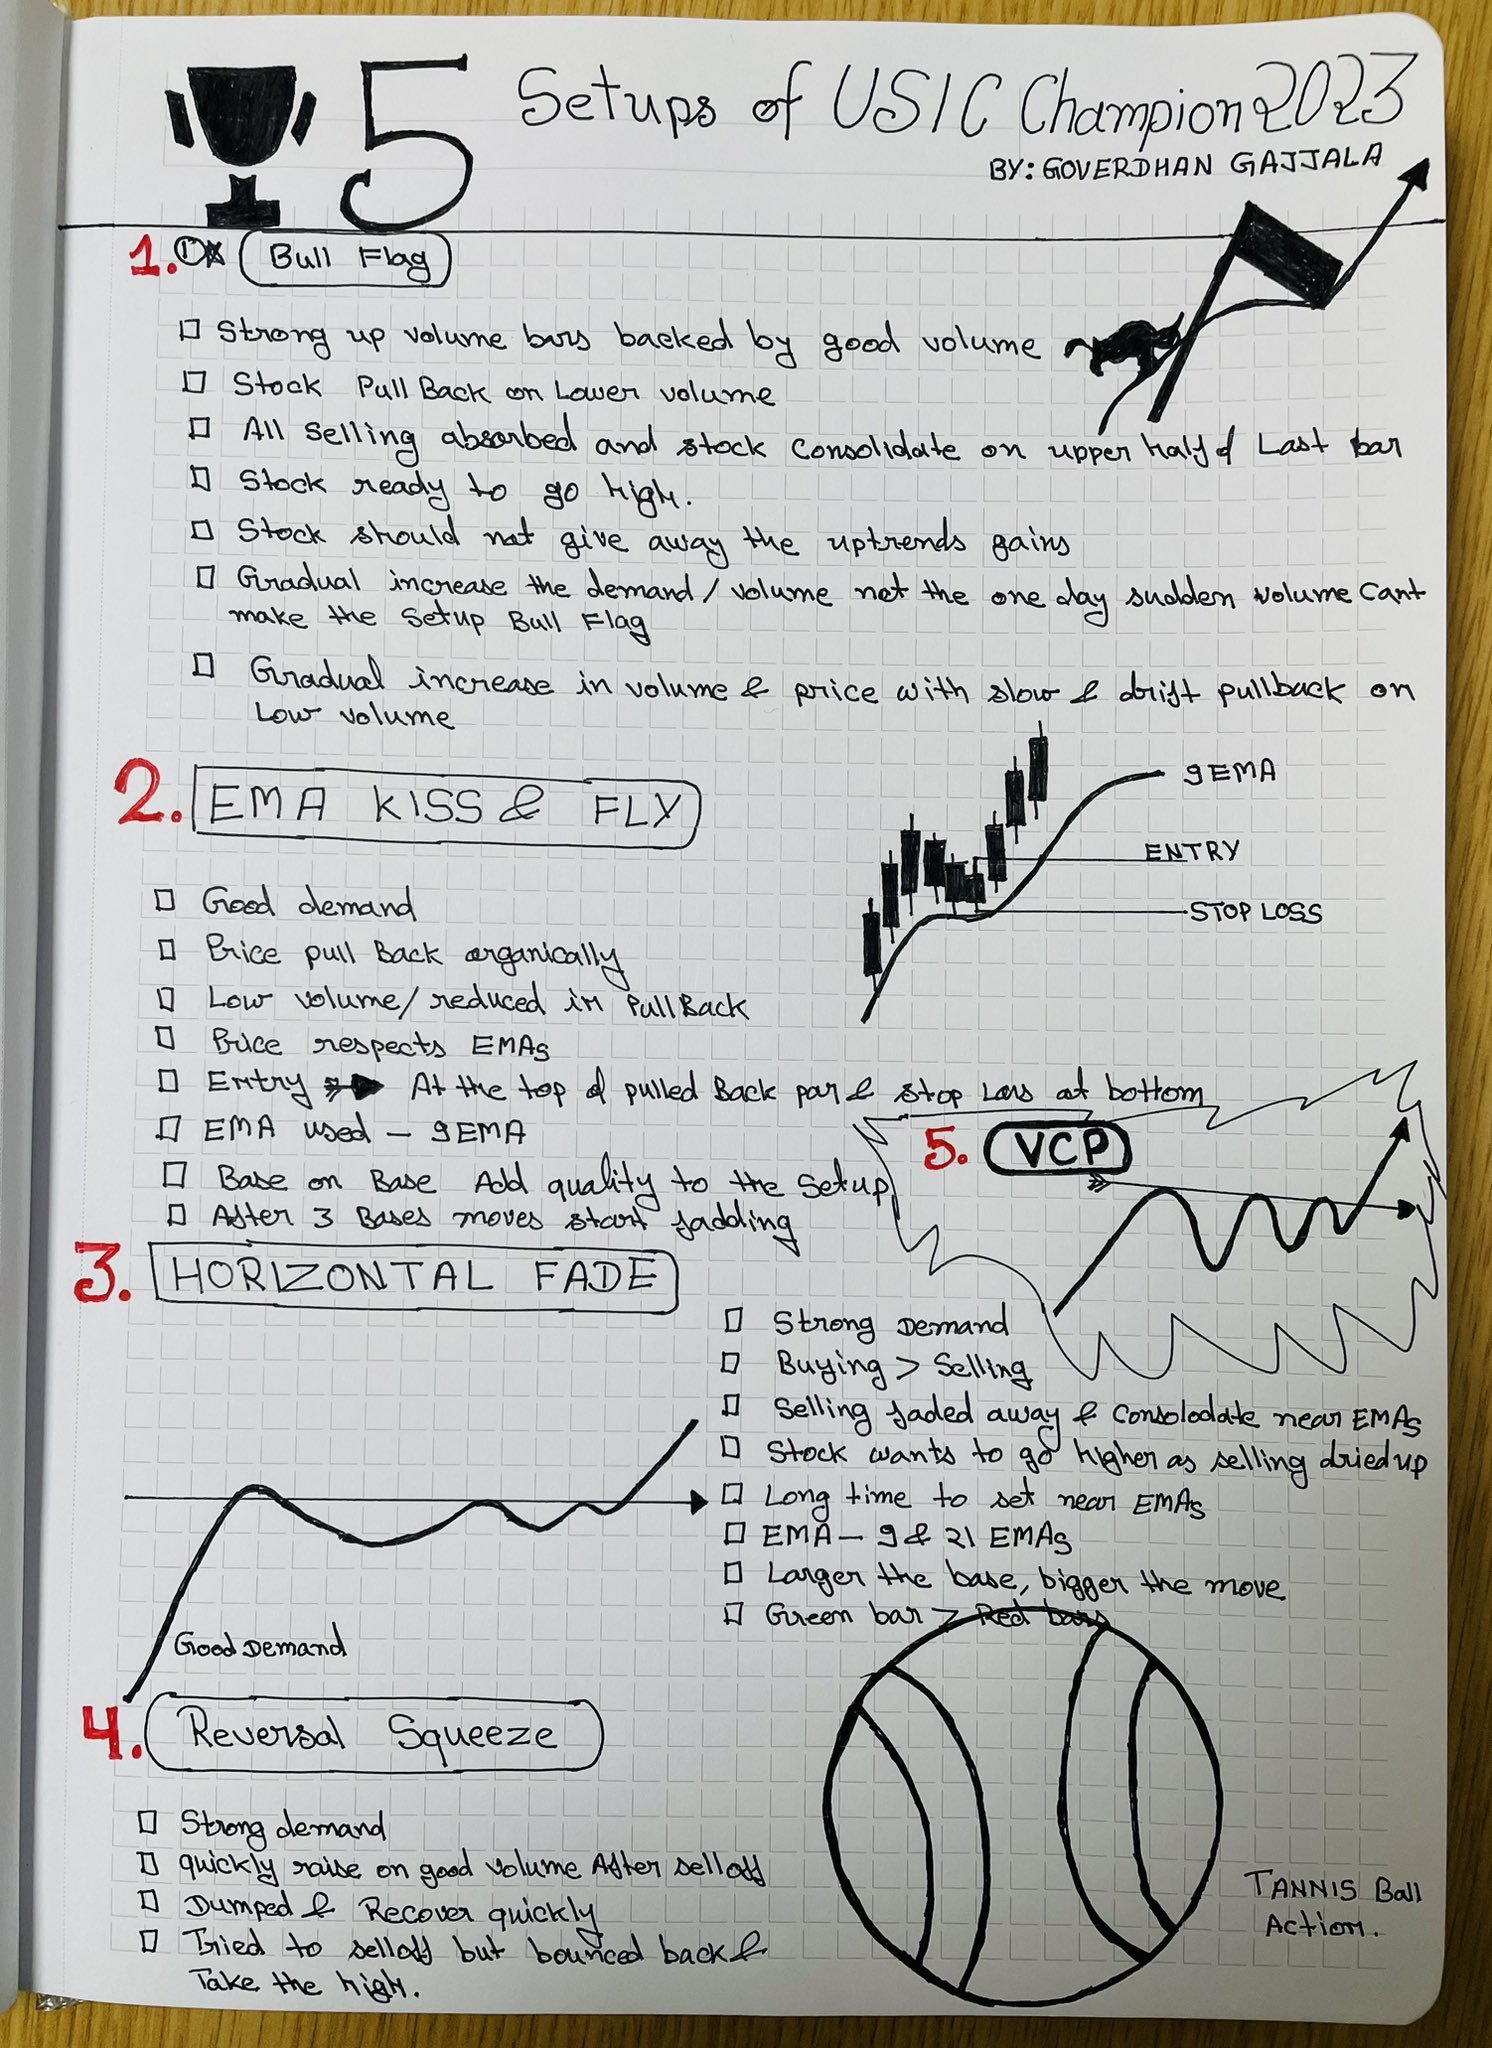 5 Setups of USIC Champion 2023
BY: GOVERDHAN GAJJALA
1. Bull Flag
Strong up volume bars backed by good volume
Stock Pull Back on Lower volume
All Selling absorbed and stock Consolidate on upper half of Last bar
Stock ready to go high.
Stock should not give away the uptrends gains
Gradual increase the demand/volume not the one day sudden volume Cant
make the Setup Bull Flag
Gradual increase in volume & price with slow & drift pullback on
Low volume
2. EMA KISS & FLY
9EMA
ENTRY
STOP LOSS
Good demand
Price pull Back organically
Low volume/reduced in Pull Back
Price respects EMAs
Entry At the top of pulled Back par & stop Loss at bottom
EMA used - 9EMA
Base on Base Add quality to the Setup
After 3 Bases moves start fadding
3. HORIZONTAL FADE
Good Demand
Strong Demand
Buying > Selling
Selling faded away & Consolodate near EMAs
Stock wants to go higher as selling dried up
Long time to set near EMAs
EMA - 9 & 21 EMAs
Larger the base, bigger the move
Green bar > Red bars
4. Reversal Squeeze
Strong demand
quickly raise on good volume After selloff
Dumped & Recover quickly
Tried to selloff but bounced back &
Take the high.
TANNIS Ball
Action.
5. VCP